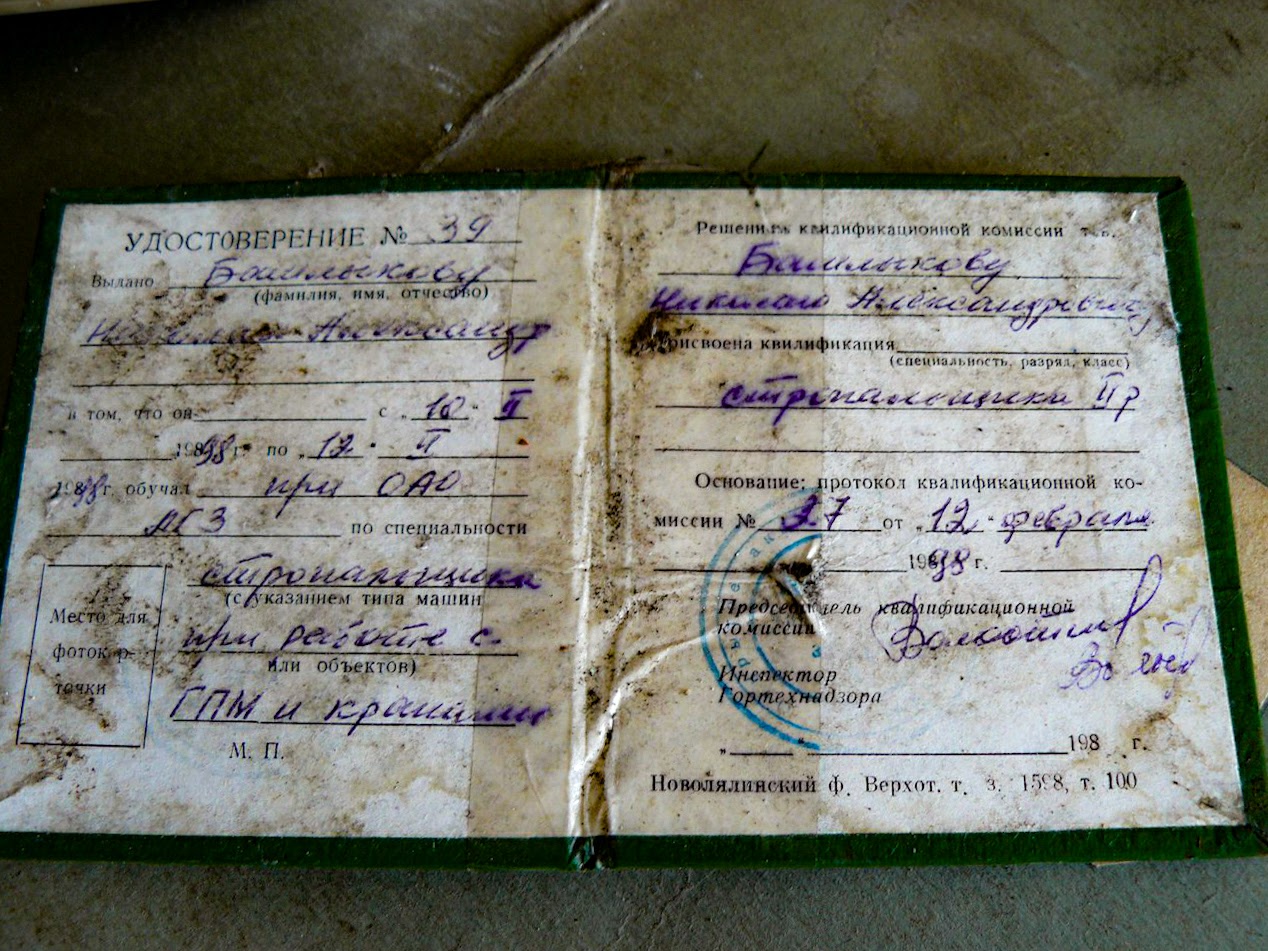 УДОСТОВЕРЕНИЕ № 39
Выдано Башлыкову
(фамилия, имя, отчество)
Николаю Александр
в том, что он с „10" II
1998 г. по „12" II
1998 г. обучал при ОАО
по специальности
стропальщика
(с указанием типа машин
при работе с
или объектов)
ГПМ и кранами
Место для
фотокар-
точки
М. П.
Решением квилификационной комиссии т.в.
Башлыкову
Николаю Александровичу
присвоена квилификация
(специальность, разряд, класс)
стропальщика II р
Основание: протокол квалификационной ко-
миссии № 37 от „12" февраля
1998 г.
Председатель квалификационной
комиссии
Инспектор
Гортехнадзора
„ " 198 г.
Новолялинский ф. Верхот. т. з. 1598, т. 100